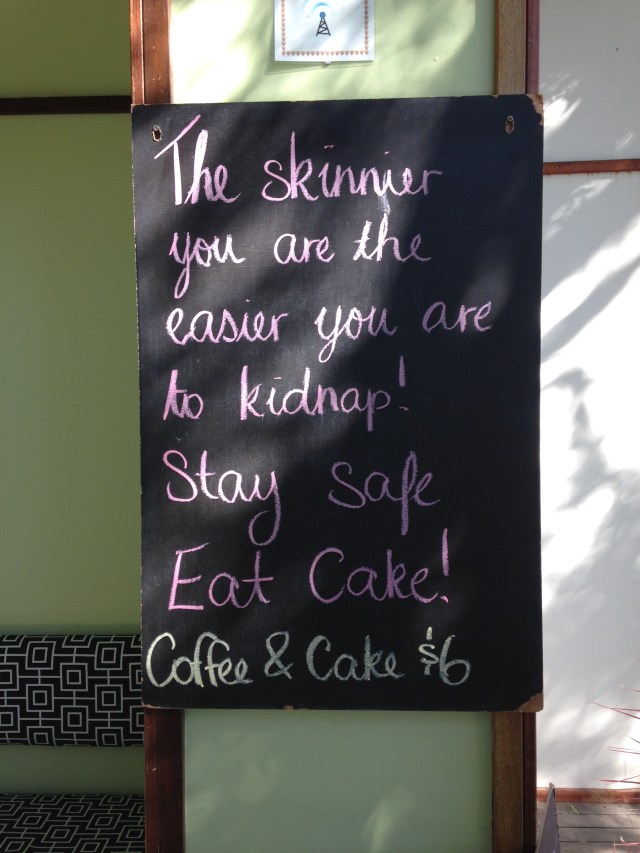 The skinnier
you are the
easier you are
to kidnap!
Stay Safe
Eat Cake!
Coffee & Cake $6